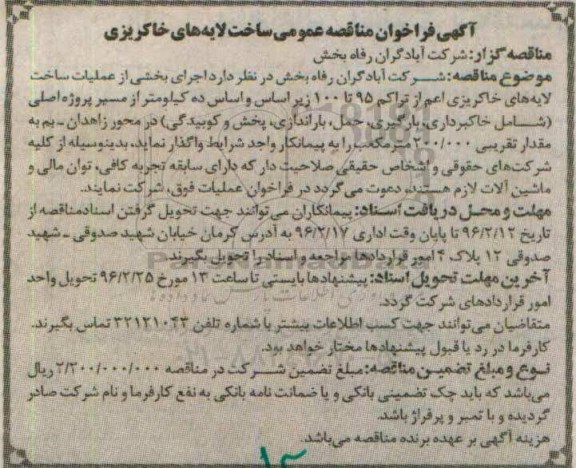 آگهی فراخوان مناقصه عمومی ساخت لایه‌های خاکریزی
مناقصه گزار: شرکت آبادگران رفاه بخش
موضوع مناقصه: شرکت آبادگران رفاه بخش در نظر دارد اجرای بخشی از عملیات ساخت
لایه‌های خاکریزی اعم از تراکم ۹۵ تا ۱۰۰ زیر اساس و اساس ده کیلومتر از مسیر پروژه اصلی
(شامل خاکبرداری، بارگیری، حمل، باراندازی، پخش و کوبیدگی) در محور زاهدان ـ بم به
مقدار تقریبی ۲۰۰/۰۰۰ مترمکعب را به پیمانکار واجد شرایط واگذار نماید، بدینوسیله از کلیه
شرکت‌های حقوقی و اشخاص حقیقی صلاحیت دار که دارای سابقه تجربه کافی، توان مالی و
ماشین آلات لازم هستند، دعوت می‌گردد در فراخوان عملیات فوق، شرکت نمایند.
مهلت و محل دریافت اسناد: پیمانکاران می‌توانند جهت تحویل گرفتن اسناد مناقصه از
تاریخ ۹۶/۲/۱۲ تا پایان وقت اداری ۹۶/۲/۱۷ به آدرس کرمان خیابان شهید صدوقی ـ شهید
صدوقی ۱۲ پلاک ۴ امور قراردادها مراجعه و اسناد را تحویل بگیرند.
آخرین مهلت تحویل اسناد: پیشنهادها بایستی تا ساعت ۱۳ مورخ ۹۶/۲/۲۵ تحویل واحد
امور قراردادهای شرکت گردد.
متقاضیان می‌توانند جهت کسب اطلاعات بیشتر با شماره تلفن ۳۲۱۲۱۰۴۳ تماس بگیرند.
کارفرما در رد یا قبول پیشنهادها مختار خواهد بود.
نوع و مبلغ تضمین مناقصه: مبلغ تضمین شرکت در مناقصه ۲/۳۰۰/۰۰۰/۰۰۰ ریال
می‌باشد که باید چک تضمینی بانکی و یا ضمانت نامه بانکی به نفع کارفرما و نام شرکت صادر
گردیده و با تمبر و پرفراژ باشد.
هزینه آگهی بر عهده برنده مناقصه می‌باشد.